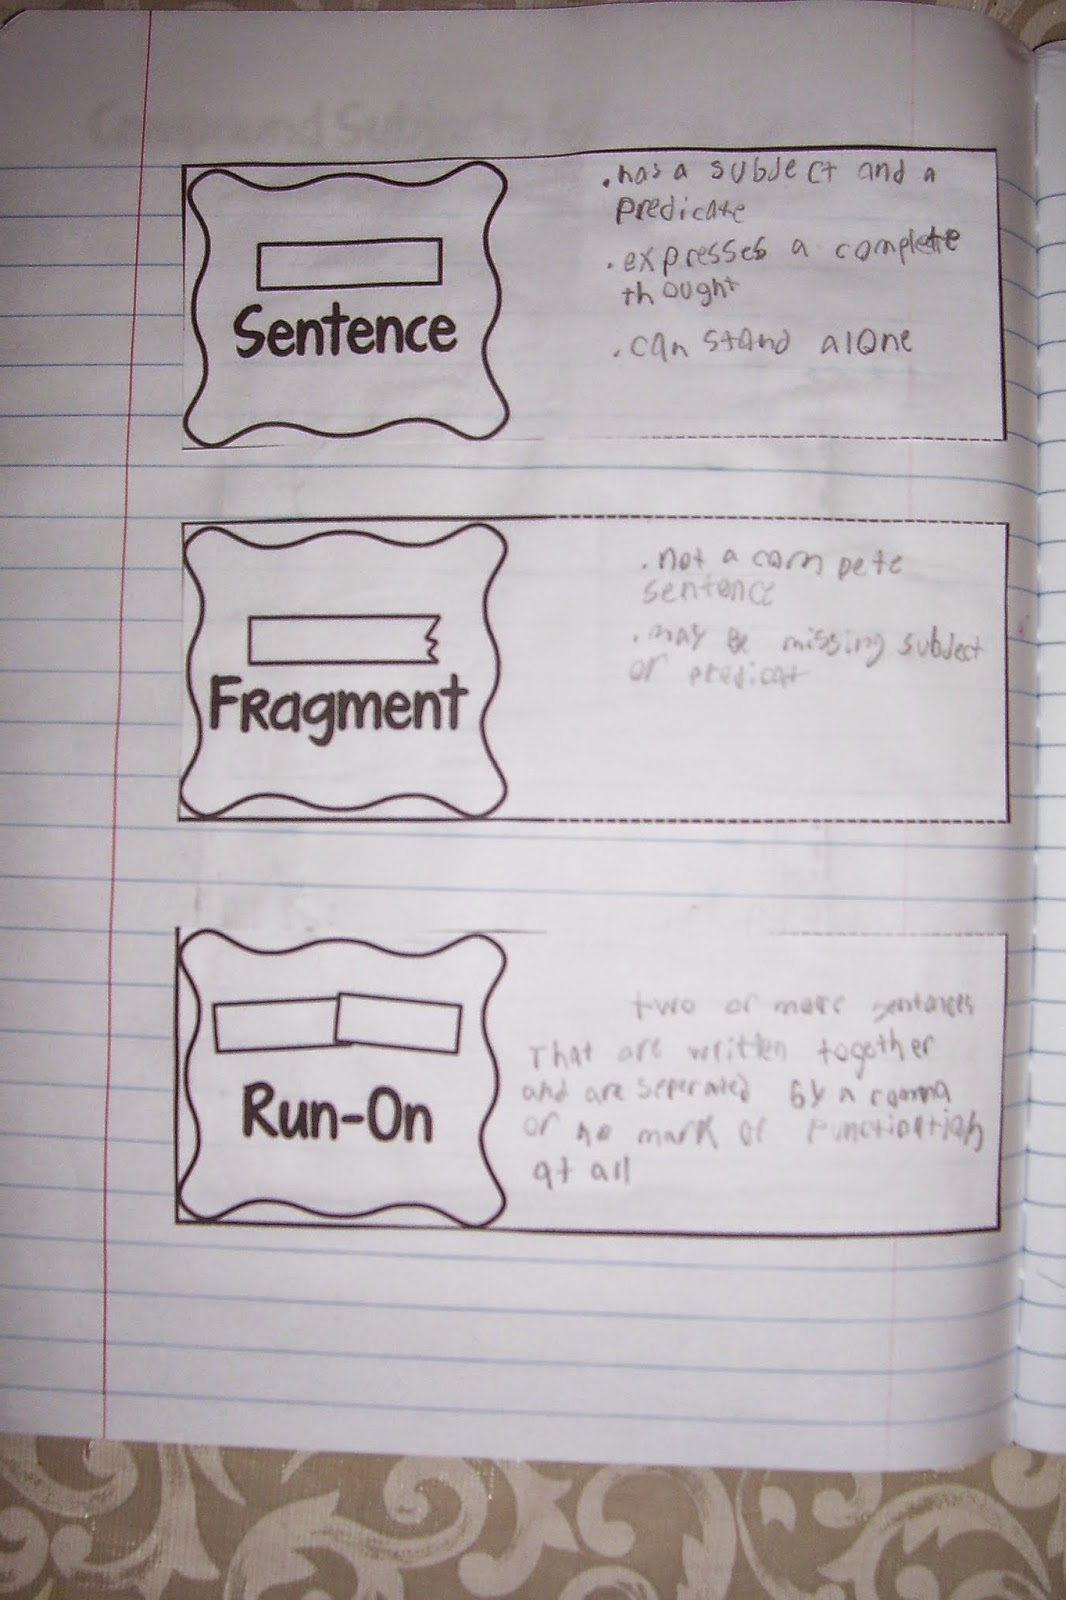 Compound Subjects &
. has a subject and a
predicate
. expresses a complete
thought
. can stand alone
Sentence
. not a compete
sentence
. may be missing subject
or predicat
Fragment
two or more sentances
That are written together
and are seperated by a comma
or no mark of punctiation
at all
Run-On